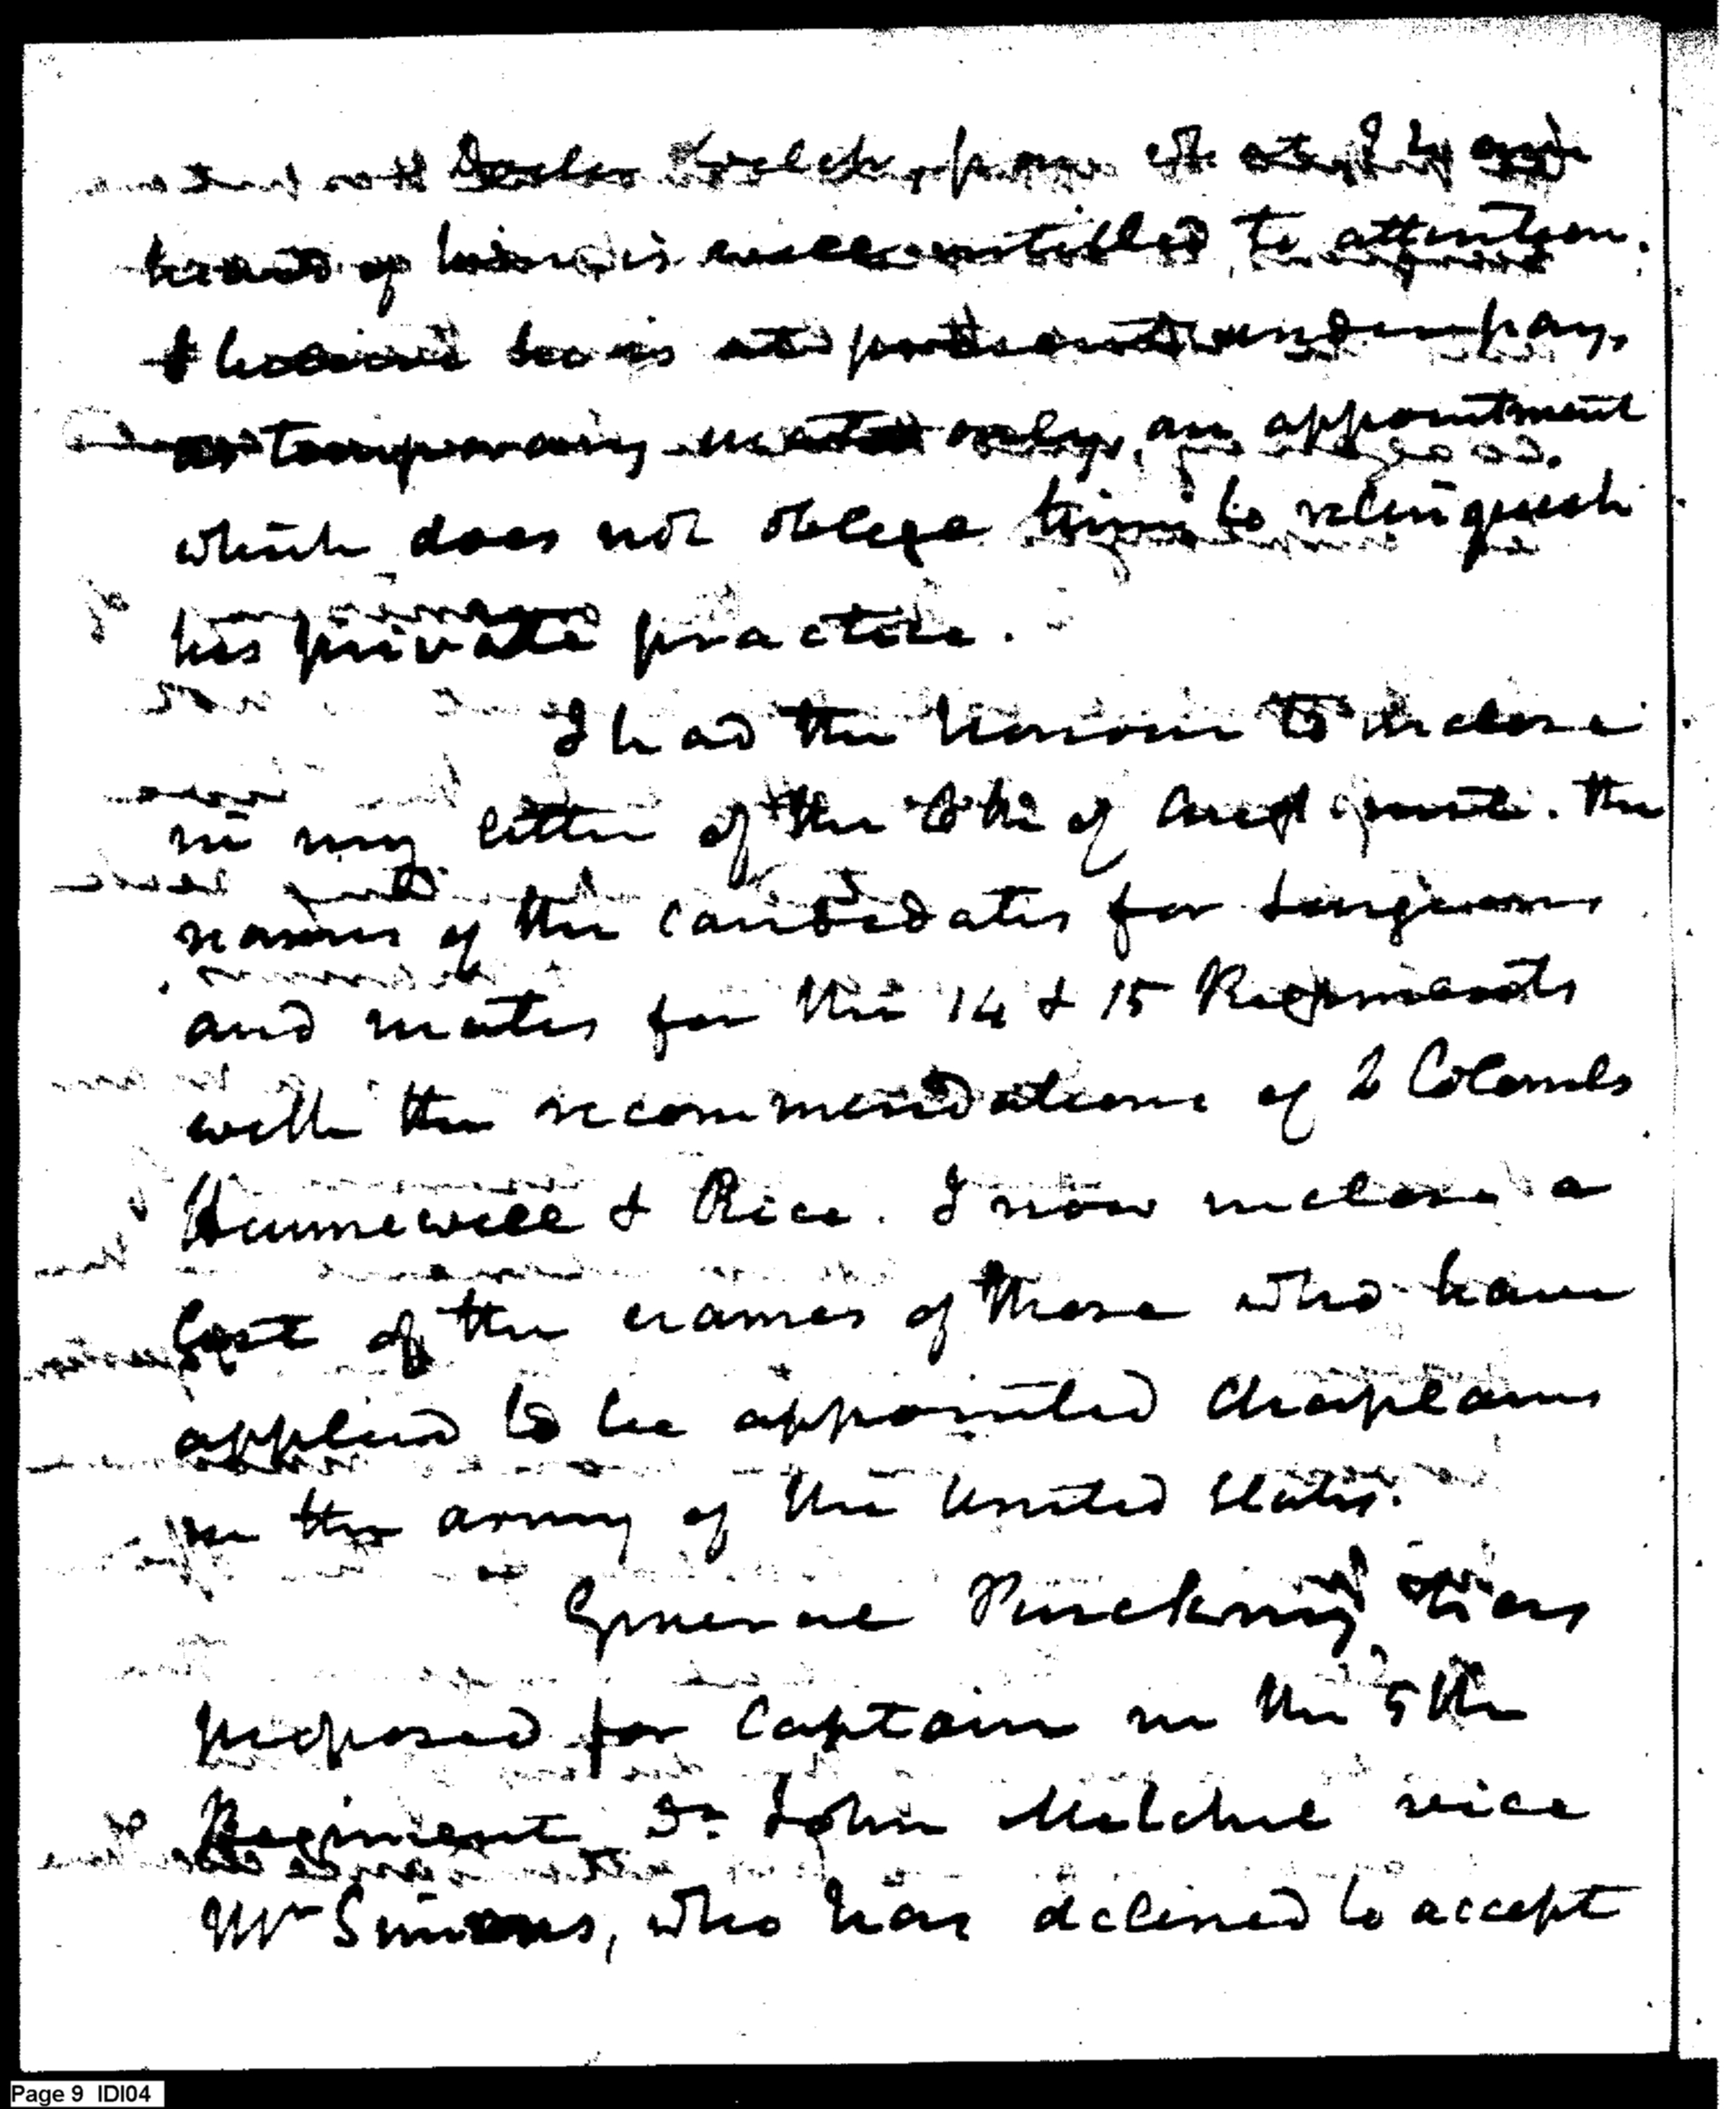 Doctor Welch, from what I have
heard of him, is well entitled to attention.
I believe he is at present under pay,
as temporary mate only, an appointment
which does not oblege him to relinquish
his private practice.
I had the honour to inclose
in my letter of the 6th of August the
names of the candidates for surgeons
and mates for the 14 & 15 Regiments
with the recommendations of Colonels
Hunnewell & Rice. I now inclose a
list of the names of those who have
applied to be appointed Chaplains
in the army of the United States.
General Pinckney has
proposed for Captain in the 5th
Regiment Dr. John Mitchel vice
Mr Simons, who has declined to accept
Page 9 IDI04